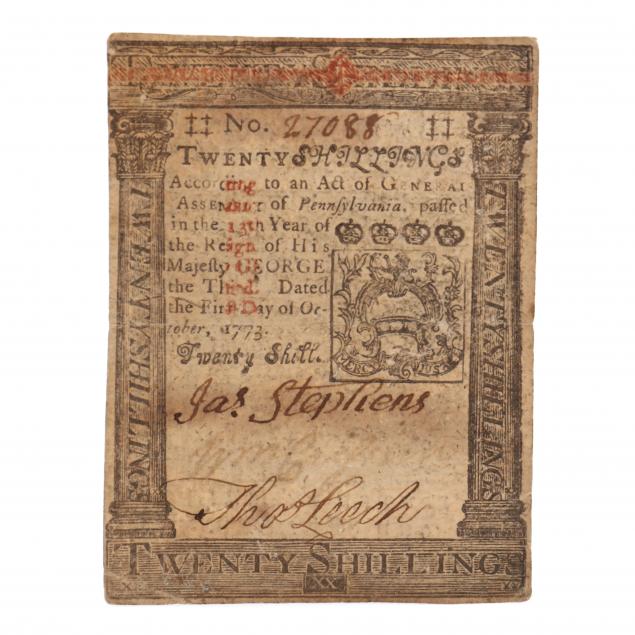 No. 27088
TWENTY SHILLINGS
According to an Act of GENERAL
ASSEMBLY of Pennsylvania, passed
in the 13th Year of
the Reign of His
Majesty GEORGE
the Third. Dated
the First Day of Oc-
tober, 1773.
Twenty Shill.
MERCY JUSTICE
Jas. Stephens
Thos Leech
TWENTY SHILLINGS
TWENTY SHILLINGS
TWENTY SHILLINGS
XX